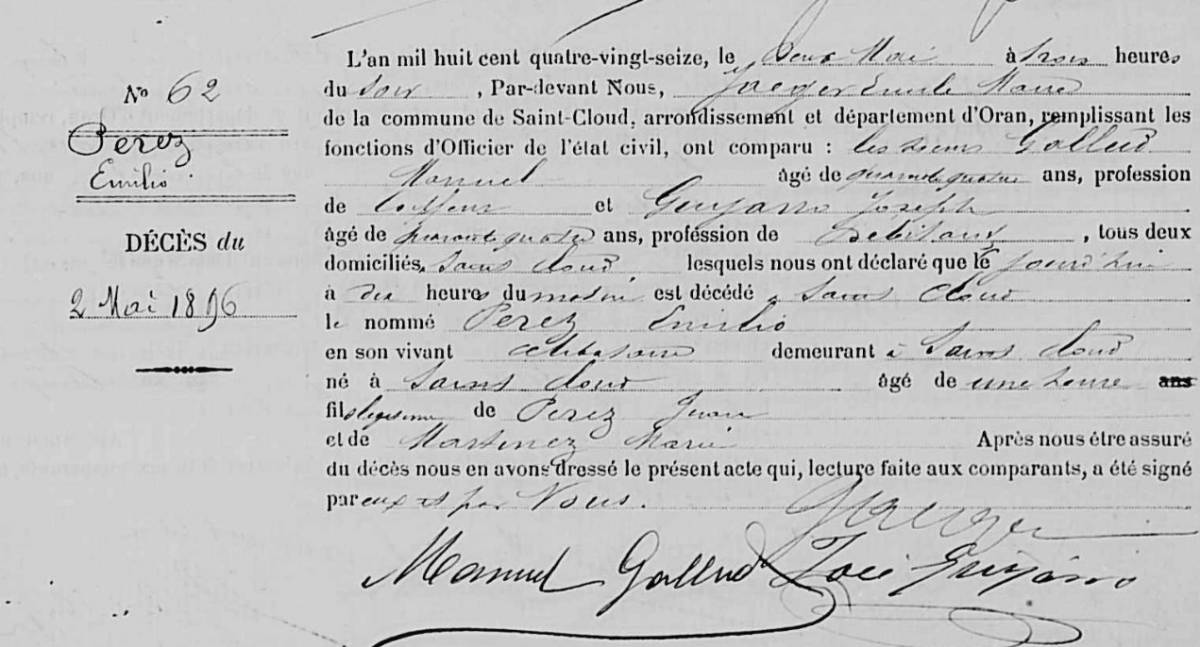 L'an mil huit cent quatre-vingt-seize, le Deux Mai à trois heures
No 62
du Soir, Par-devant Nous, Jaeger Emile Maire
de la commune de Saint-Cloud, arrondissement et département d'Oran, remplissant les
Perez
fonctions d'Officier de l'état civil, ont comparu : les sieurs Gallud
Emilio
Manuel âgé de quarante quatre ans, profession
de Coiffeur et Guijarro Joseph
DÉCÈS du
âgé de quarante quatre ans, profession de Debitant, tous deux
domiciliés, Saint Cloud lesquels nous ont déclaré que le jourd'hui
2 Mai 1896
à dix heures du matin est décédé à Saint Cloud
le nommé Perez Emilio
en son vivant célibataire demeurant à Saint Cloud
né à Saint Cloud âgé de une heure ans
fils légitime de Perez Juan
et de Martinez Marie Après nous être assuré
du décès nous en avons dressé le présent acte qui, lecture faite aux comparants, a été signé
par eux et par Nous.
Jaeger
Manuel Gallud José Guijarro